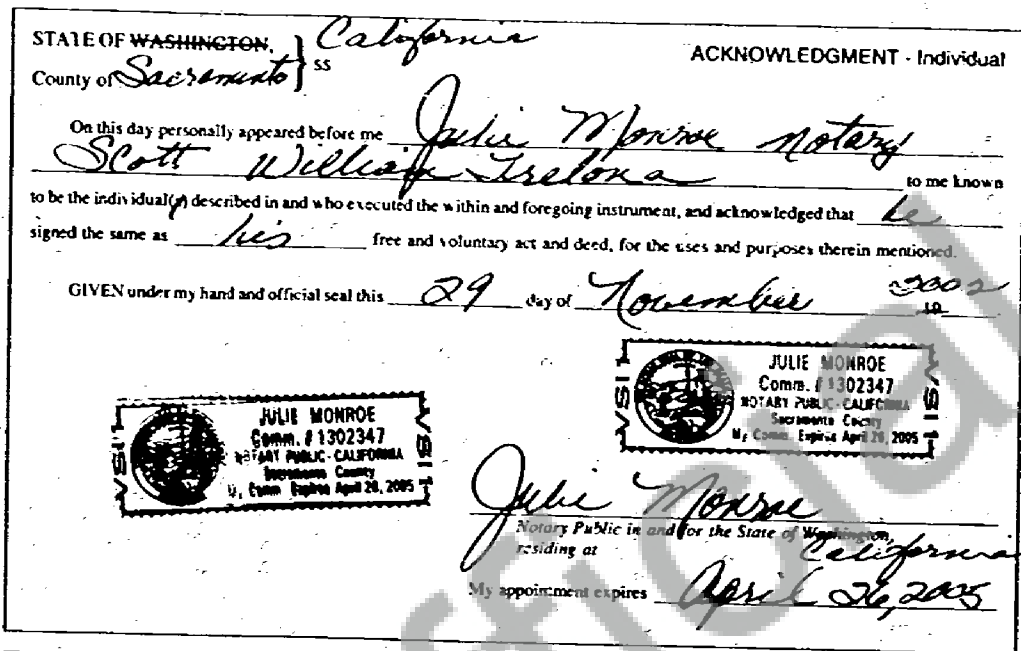 STATE OF WASHINGTON, California
ACKNOWLEDGMENT - Individual
County of Sacramento } ss
On this day personally appeared before me Julie Monroe notary
Scott William Trelona to me known
to be the individual(s) described in and who executed the within and foregoing instrument, and acknowledged that he
signed the same as his free and voluntary act and deed, for the uses and purposes therein mentioned.
GIVEN under my hand and official seal this 29 day of November 2002
19
JULIE MONROE
Comm. # 1302347
NOTARY PUBLIC - CALIFORNIA
Sacramento County
My Comm. Expires April 26, 2005
JULIE MONROE
Comm. # 1302347
NOTARY PUBLIC - CALIFORNIA
Sacramento County
My Comm. Expires April 26, 2005
Julie Monroe
Notary Public in and for the State of Washington,
residing at California
My appointment expires April 26, 2005